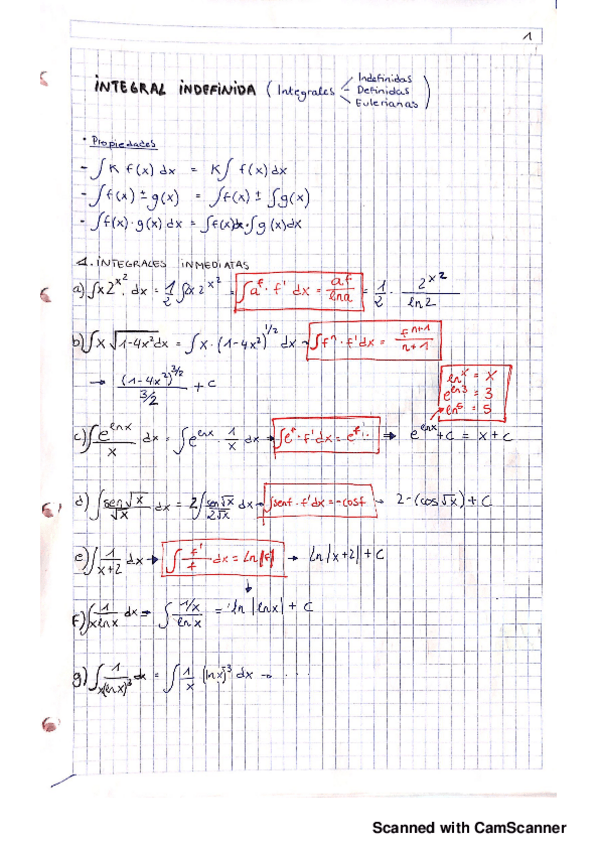 1
INTEGRAL INDEFINIDA ( Integrales Indefinidas - Definidas Eulerianas )
• Propiedades
- ∫ K f(x) dx = K ∫ f(x) dx
- ∫ f(x) ± g(x) = ∫ f(x) ± ∫ g(x)
- ∫ f(x) · g(x) dx = ∫ f(x) dx · ∫ g(x) dx
1. INTEGRALES INMEDIATAS
a) ∫ x 2^x² · dx = 1/2 ∫ x 2^x² = ∫ a^f · f' dx = a^f/lna = 1/2 · 2^x²/ln2
b) ∫ x √(1-4x²) dx = ∫ x · (1-4x²)^1/2 dx → ∫ f^n · f' dx = f^(n+1)/(n+1)
→ (1-4x²)^3/2 / 3/2 + C
ln^x = x
e^ln3 = 3
ln^5 = 5
c) ∫ e^lnx/x dx = ∫ e^lnx · 1/x dx → ∫ e^f · f' dx = e^f · → e^lnx + C = x + C
d) ∫ sen√x/√x dx = 2 ∫ sen√x/2√x dx → ∫ senf · f' dx = -cosf → 2-(cos√x) + C
e) ∫ 1/x+2 dx → ∫ f'/f dx = Ln|f| → ln|x+2| + C
f) ∫ 1/xlnx dx → ∫ 1/x/lnx = ln |lnx| + C
g) ∫ 1/x(lnx)³ dx = ∫ 1/x (lnx)^-3 dx → · · · ·
Scanned with CamScanner